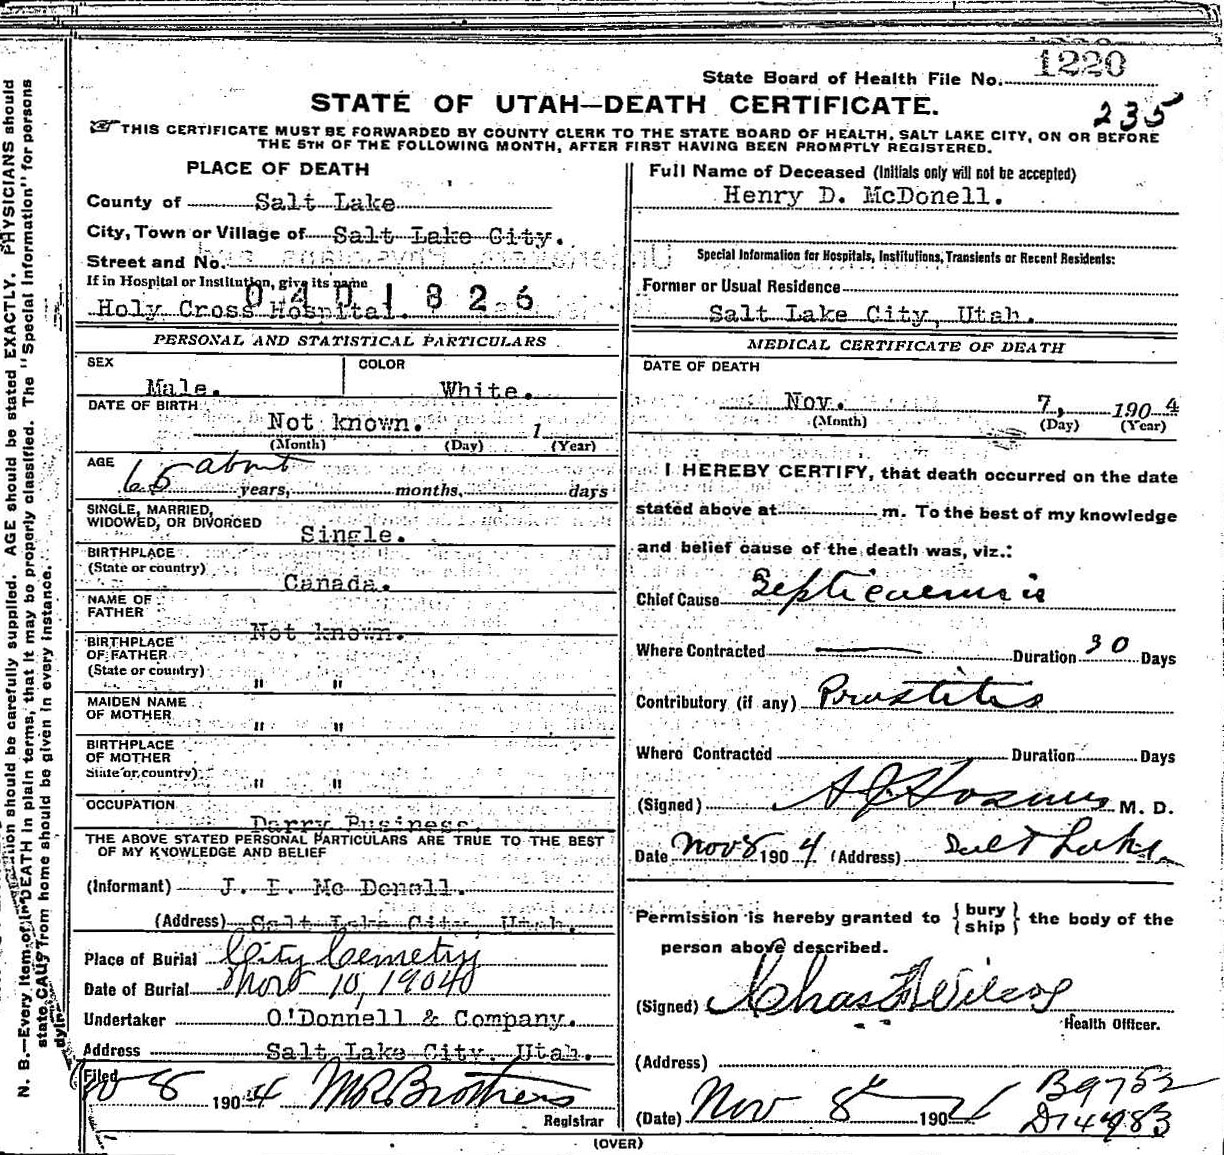 State Board of Health File No. 1220
STATE OF UTAH—DEATH CERTIFICATE.
235
THIS CERTIFICATE MUST BE FORWARDED BY COUNTY CLERK TO THE STATE BOARD OF HEALTH, SALT LAKE CITY, ON OR BEFORE
THE 5TH OF THE FOLLOWING MONTH, AFTER FIRST HAVING BEEN PROMPTLY REGISTERED.
PLACE OF DEATH
County of Salt Lake
City, Town or Village of Salt Lake City.
Street and No.
If in Hospital or Institution, give its name
0401826
Holy Cross Hospital.
PERSONAL AND STATISTICAL PARTICULARS
SEX COLOR
Male. White.
DATE OF BIRTH
Not known. 1
(Month) (Day) (Year)
AGE about
65 years, months, days
SINGLE, MARRIED,
WIDOWED, OR DIVORCED
Single.
BIRTHPLACE
(State or country)
Canada.
NAME OF
FATHER
Not known.
BIRTHPLACE
OF FATHER
(State or country)
" "
MAIDEN NAME
OF MOTHER
" "
BIRTHPLACE
OF MOTHER
State or country)
" "
OCCUPATION
Business.
THE ABOVE STATED PERSONAL PARTICULARS ARE TRUE TO THE BEST
OF MY KNOWLEDGE AND BELIEF
(Informant) J. E. Mc Donell.
(Address) Salt Lake City, Utah.
Place of Burial City Cemetry
Date of Burial Nov 10, 1904
Undertaker O'Donnell & Company.
Address Salt Lake City, Utah.
Filed
8 1904
Registrar
Full Name of Deceased (Initials only will not be accepted)
Henry D. McDonell.
Special Information for Hospitals, Institutions, Transients or Recent Residents:
Former or Usual Residence
Salt Lake City, Utah.
MEDICAL CERTIFICATE OF DEATH
DATE OF DEATH
Nov. 7, 1904
(Month) (Day) (Year)
I HEREBY CERTIFY, that death occurred on the date
stated above at m. To the best of my knowledge
and belief cause of the death was, viz.:
Chief Cause Septicaemia
Where Contracted — Duration 30 Days
Contributory (if any) Prostitis
Where Contracted Duration Days
(Signed) M. D.
Date Nov 8 1904 (Address) Salt Lake
Permission is hereby granted to {bury
ship} the body of the
person above described.
(Signed) Chas F Wilcox
Health Officer.
(Address)
(Date) Nov 8th 1904
B9752
D14983
(OVER)
N. B.—Every item of information should be carefully supplied. AGE should be stated EXACTLY. PHYSICIANS should
state CAUSE OF DEATH in plain terms, that it may be properly classified. The "Special Information" for persons
dying away from home should be given in every instance.